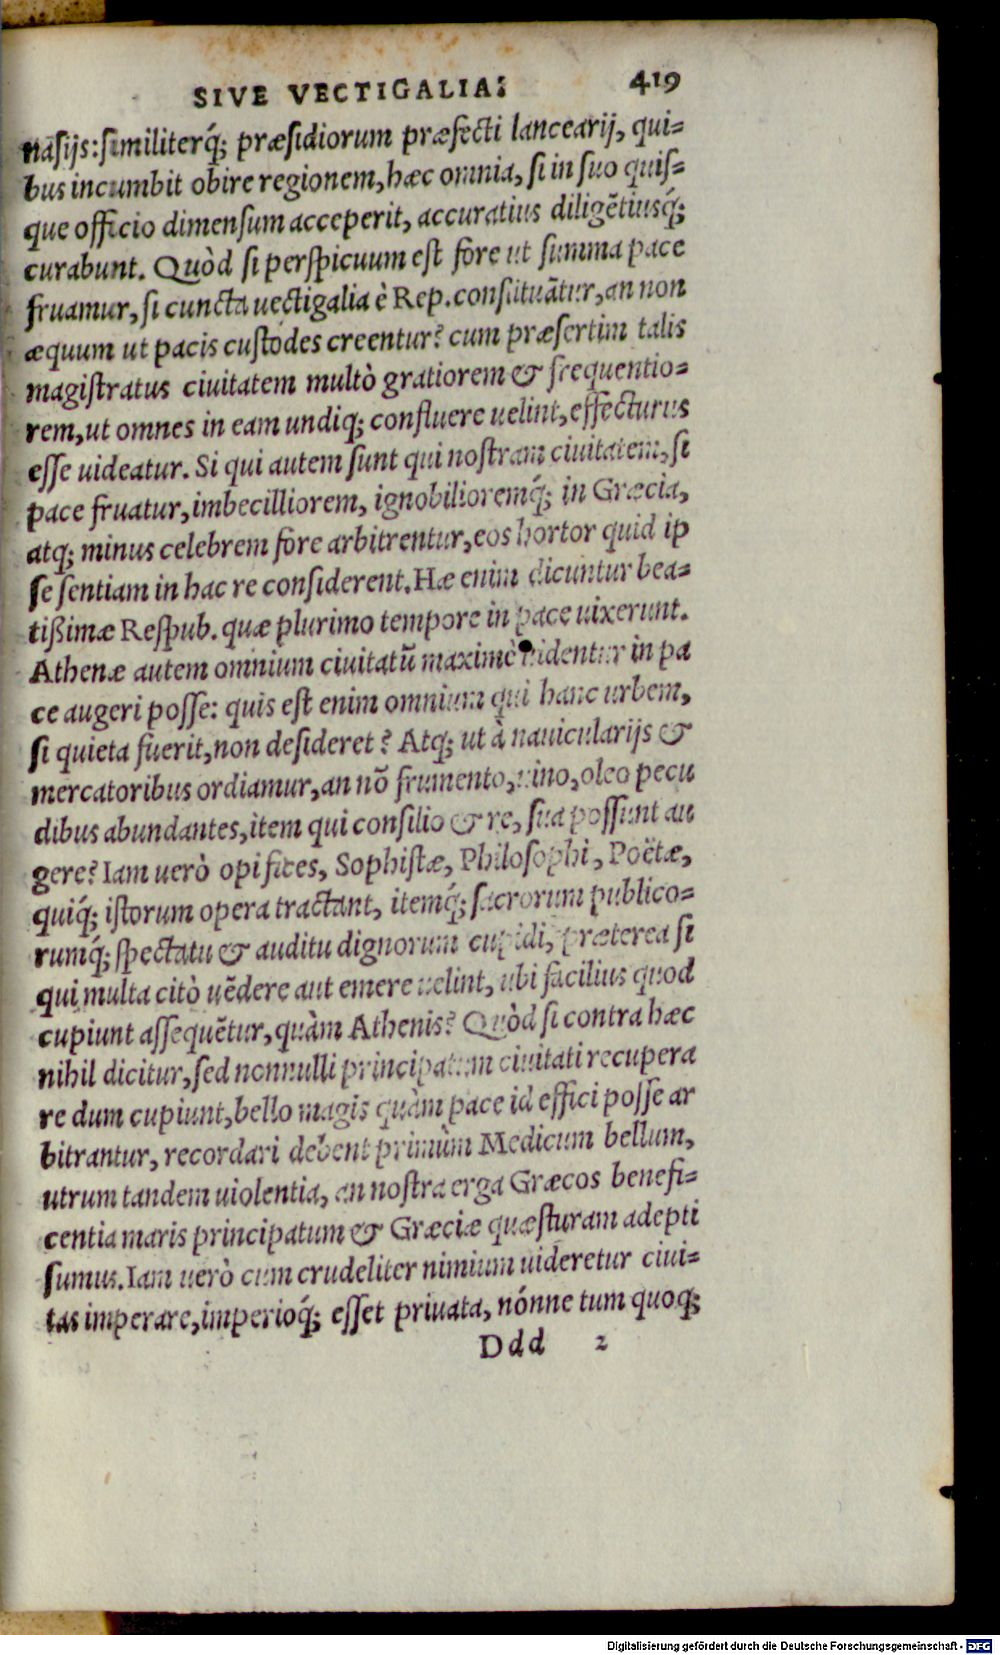 SIVE VECTIGALIA: 419
nasijs: similiterq́; præsidiorum præfecti lancearij, qui-
bus incumbit obire regionem, hæc omnia, si in suo quis-
que officio dimensum acceperit, accuratius diligẽtiusq́;
curabunt. Quòd si perspicuum est fore ut summa pace
fruamur, si cuncta uectigalia è Rep. constituãtur, an non
æquum ut pacis custodes creentur? cum præsertim talis
magistratus ciuitatem multò gratiorem & frequentio-
rem, ut omnes in eam undiq; confluere uelint, effecturus
esse uideatur. Si qui autem sunt qui nostram ciuitatem, si
pace fruatur, imbecilliorem, ignobilioremq́; in Græcia,
atq; minus celebrem fore arbitrentur, eos hortor quid ip
se sentiam in hac re considerent. Hæ enim dicuntur bea-
tißimæ Respub. quæ plurimo tempore in pace uixerunt.
Athenæ autem omnium ciuitatũ maximè uidentur in pa
ce augeri posse: quis est enim omnium qui hanc urbem,
si quieta fuerit, non desideret? Atq; ut à nauicularijs &
mercatoribus ordiamur, an nõ frumento, uino, oleo pecu
dibus abundantes, item qui consilio & re, sua possunt au
gere? Iam uerò opifices, Sophistæ, Philosophi, Poëtæ,
quiq́; istorum opera tractant, itemq́; sacrorum publico-
rumq́; spectatu & auditu dignorum cupidi, præterea si
qui multa citò uẽdere aut emere uelint, ubi facilius quod
cupiunt assequẽtur, quàm Athenis? Quòd si contra hæc
nihil dicitur, sed nonnulli principatum ciuitati recupera
re dum cupiunt, bello magis quàm pace id effici posse ar
bitrantur, recordari debent primùm Medicum bellum,
utrum tandem uiolentia, an nostra erga Græcos benefi-
centia maris principatum & Græciæ quæsturam adepti
sumus. Iam uerò cum crudeliter nimium uideretur ciui-
tas imperare, imperioq́; esset priuata, nónne tum quoq;
Ddd 2
Digitalisierung gefördert durch die Deutsche Forschungsgemeinschaft - DFG